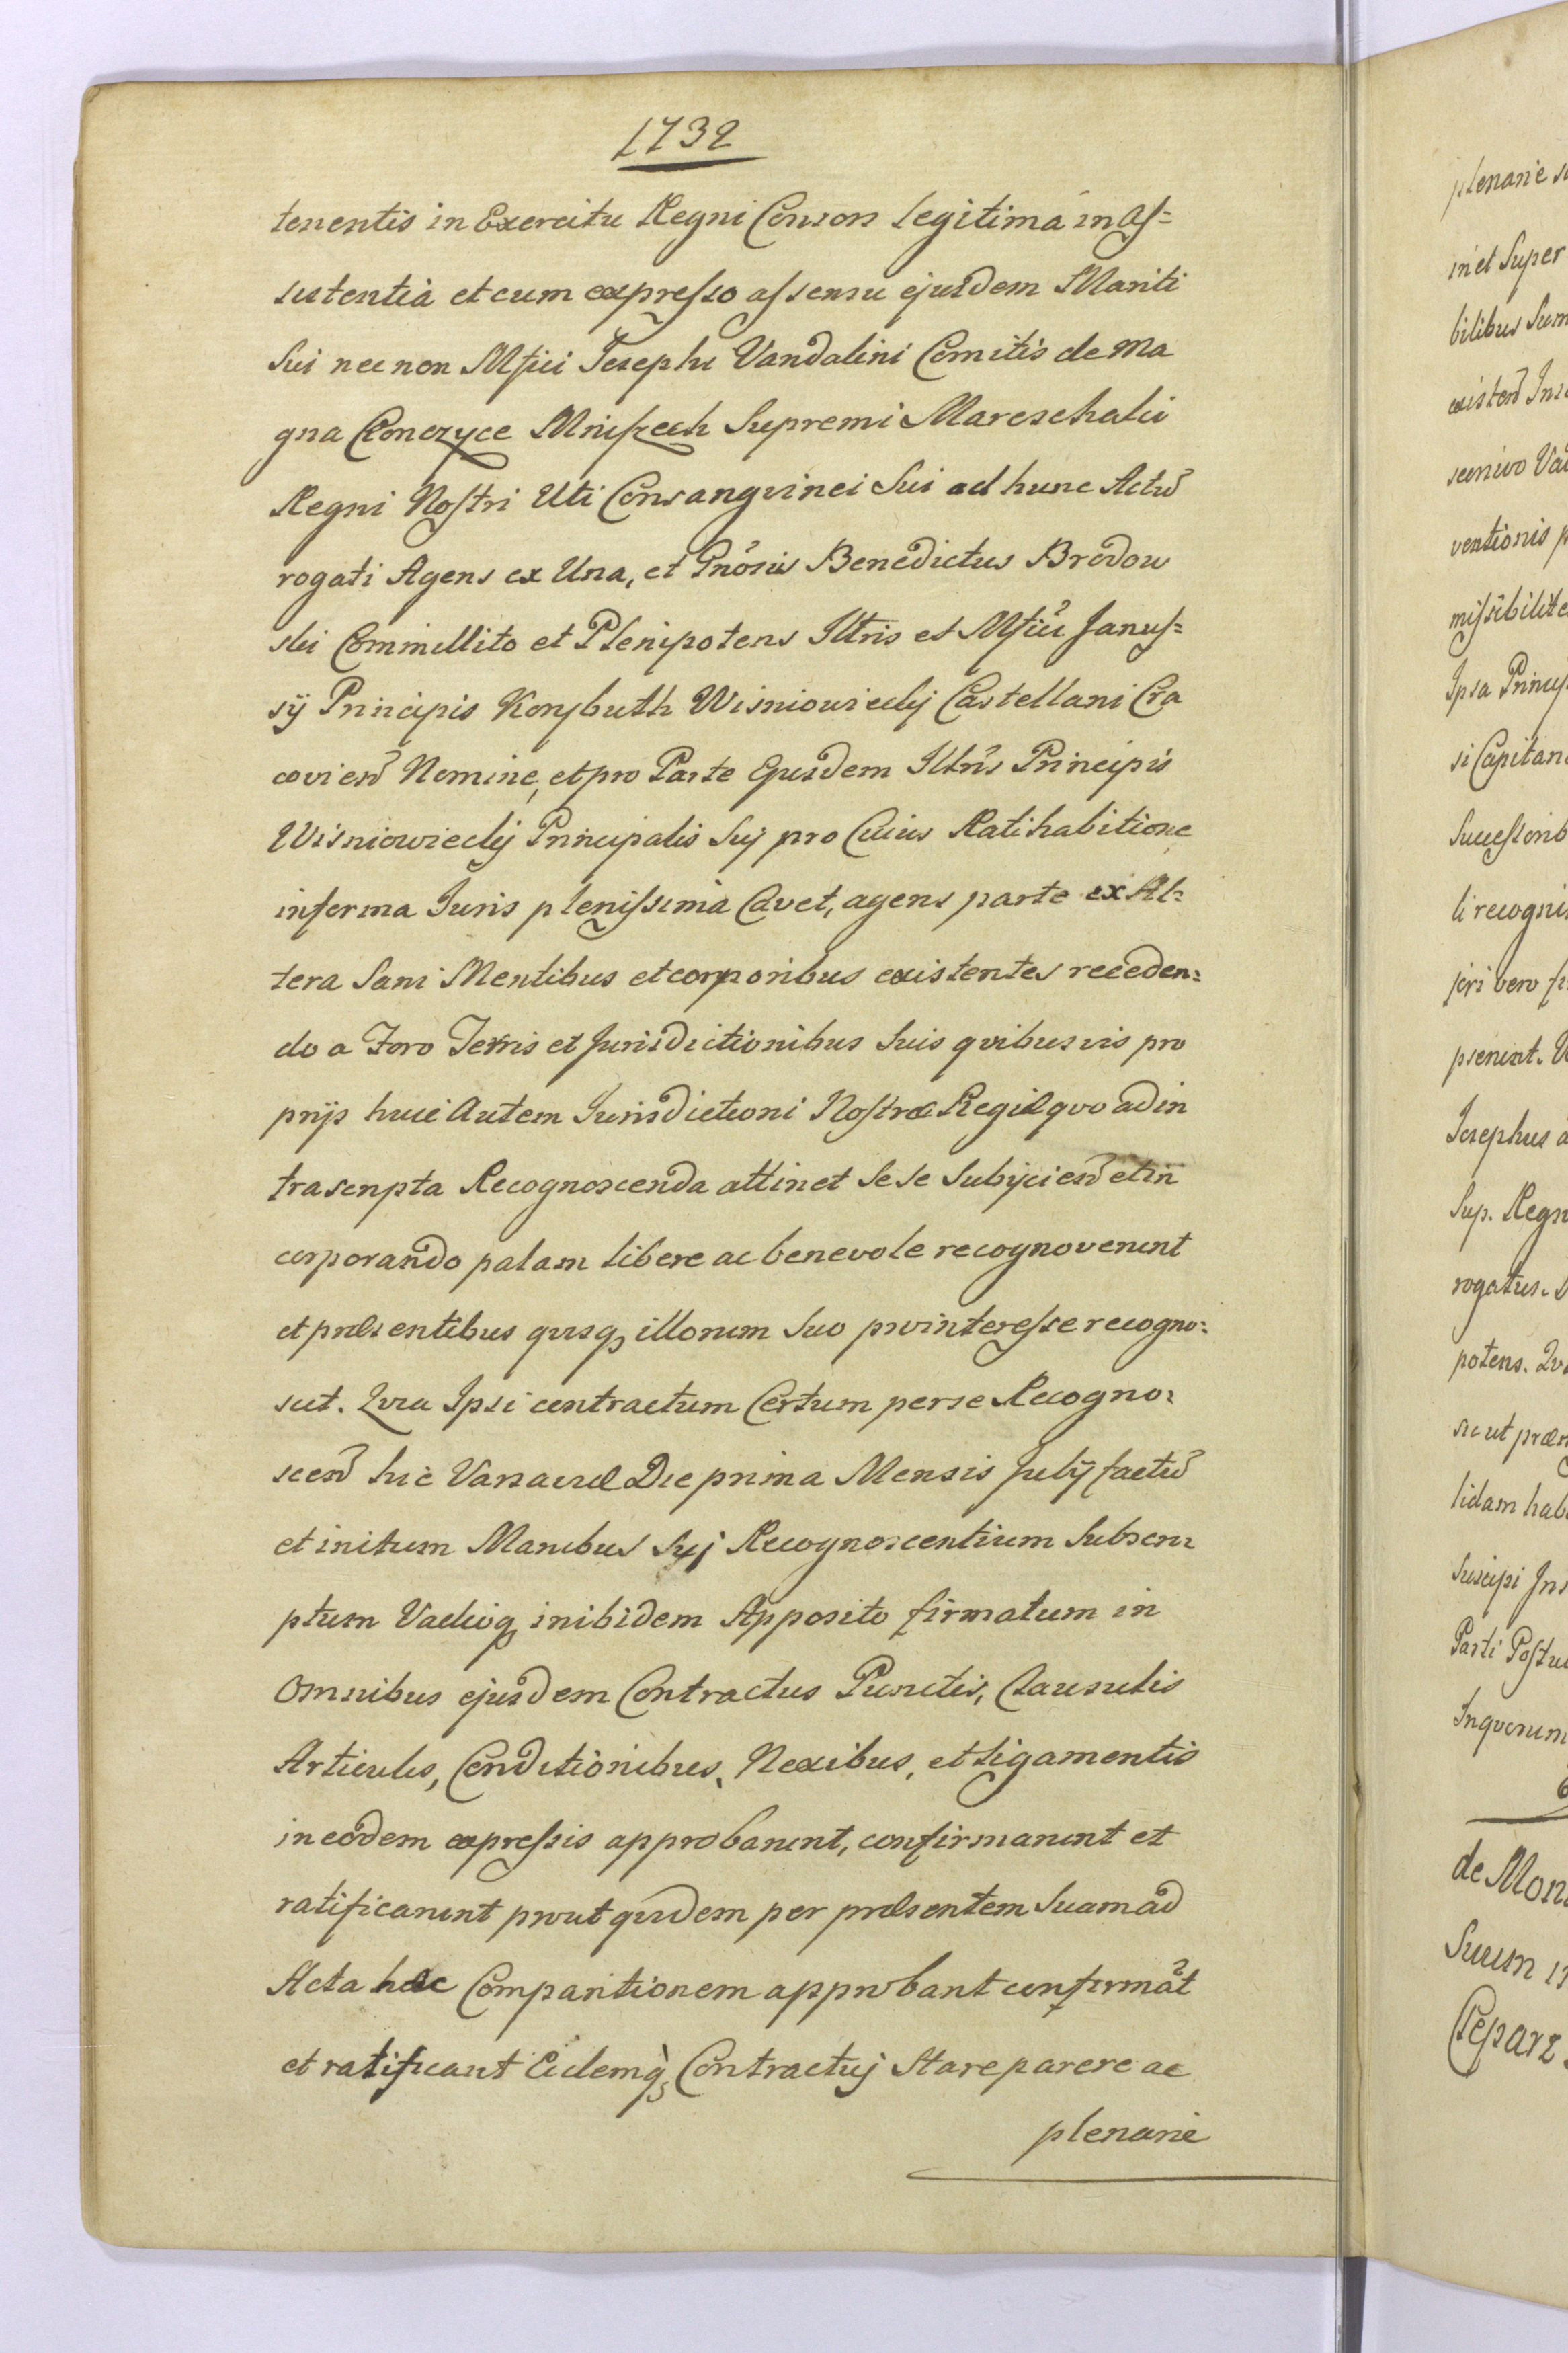 1732
tenentis in Exercitu Regni Consors Legitima in As=
sistentia et cum expresso assensu ejusdem Mariti
Sui nec non Mfici Josephi Vandalini Comitis de Ma
gna Konczyce Mniszech Supremi Mareschalci
Regni Nostri Uti Consangvinei Sui ad hunc Actũ
rogati Agens ex Una, et Gnõsus Benedictus Bredow
ski Commillito et Plenipotens Illtris et Mfici Janus=
sÿ Principis Korybuth Wisniowiecky Castellani Cra
covieñ Nomine, et pro Parte Ejusdem Illtris Principis
Wisniowiecky Principalis Suj pro Cuius Ratihabitione
in forma Juris plenissima Cavet, agens parte ex Al=
tera Sani Mentibus et corporibus existentes receden=
do a Foro Terris et Jurisdictionibus Suis qvibusvis pro
prijs huic Autem Jurisdictioni Nostræ Regiæ qvo ad in
trascripta Recognoscenda attinet Se Se Subijcieñ et in
corporando palam libere ac benevole recognoverunt
et præsentibus qvisq illorum Suo pro interesse recogno=
scit. Qvia Ipsi contractum Certum per se Recogno=
sceñ hic Varsaviæ Die prima Mensis Julÿ factũ
et initum Manibus Suj Recognoscentium Subscri=
ptum Vadioq inibidem Apposito firmatum in
Omnibus ejusdem Contractus Punctis, Clausulis
Articulis, Conditionibus, Nexibus, et Ligamentis
in eodem expressis approbarunt, confirmarunt et
ratificarunt prout qvidem per præsentem Suam ad
Acta hæc Comparitionem approbant confirmãt
et ratificant Eidemq Contractuj Stare parere ac
plenarie
plenarie
in et Super
bilibus Sum
existeñ
ventionis
Ipsa
si Capitan
li recogni
Josephus a
Sup. Regn
rogatus.
potens.
sic ut præm
lidam hab
Suscipi
Parti
de Mon
Suum